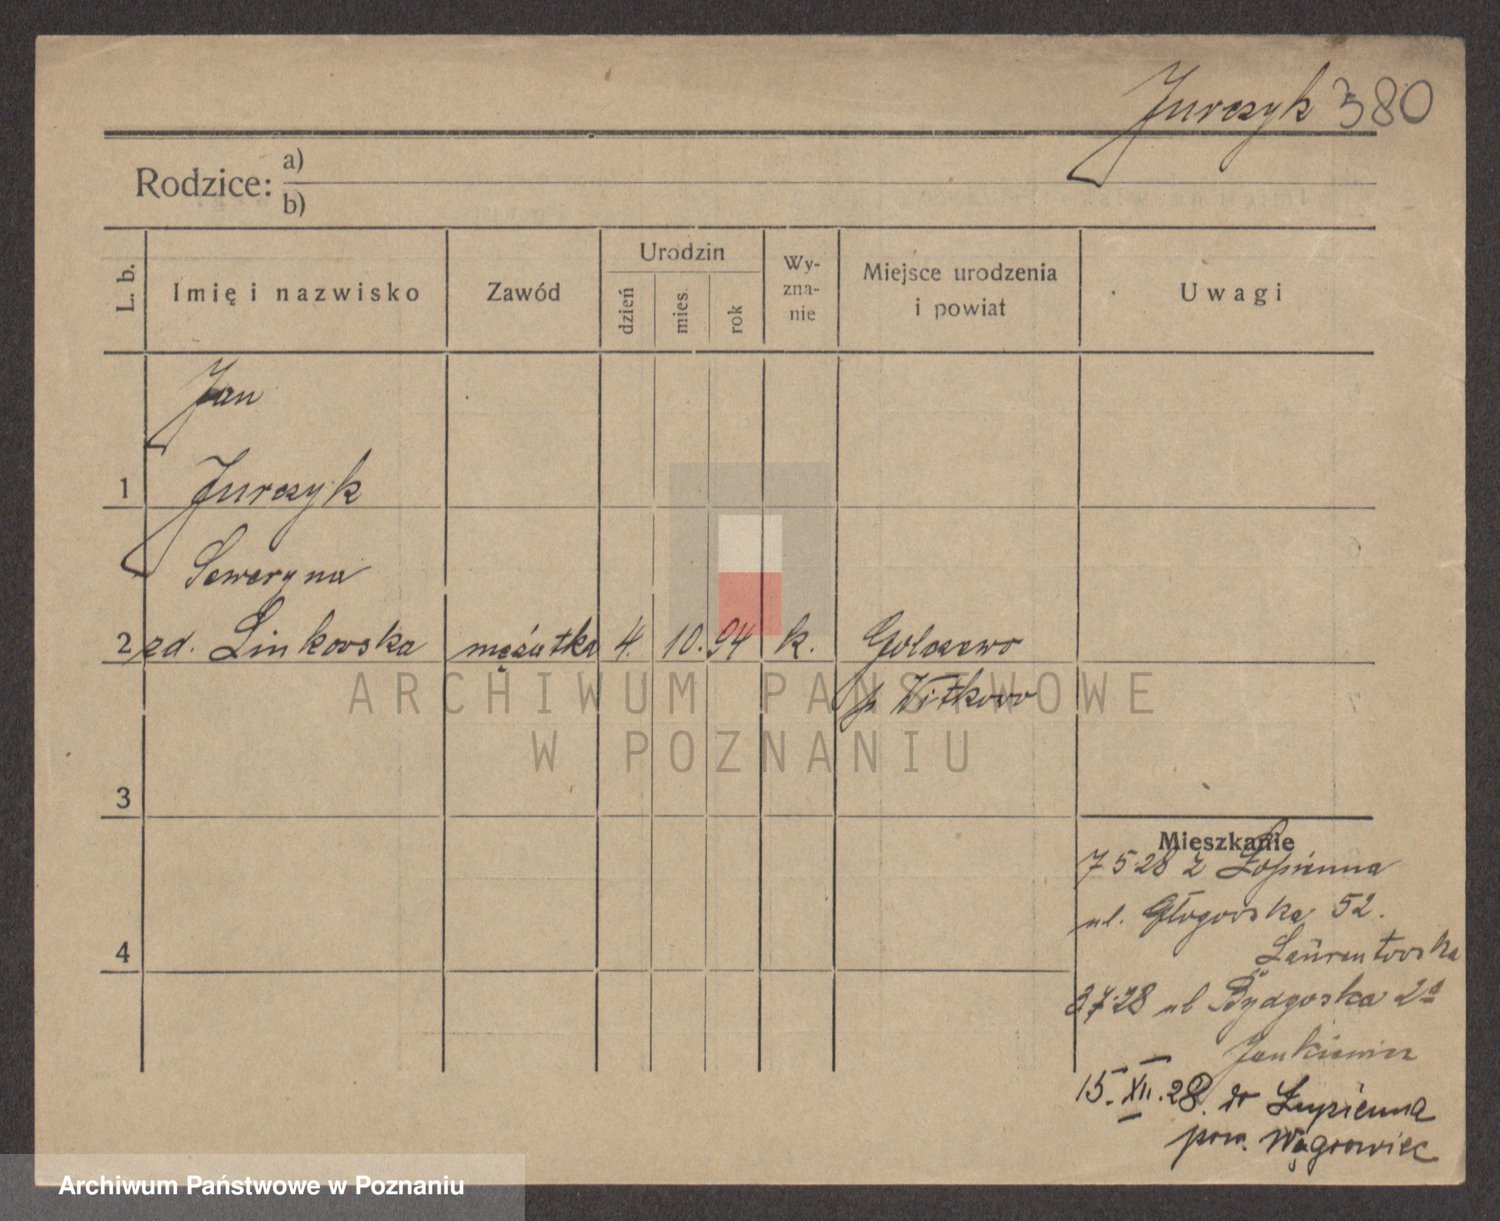 Jurczyk 380
Rodzice: a)
b)
L. b.
Imię i nazwisko
Zawód
Urodzin
dzień
mies.
rok
Wy-
zna-
nie
Miejsce urodzenia
i powiat
Uwagi
Jan
1 Jurczyk
Seweryna
2 zd. Linkowska mężatka 4. 10. 94 k. Golczewo
p Witkowo
ARCHIWUM PAŃSTWOWE
W POZNANIU
3
Mieszkanie
7 5 28 z Łopienna
ul. Głogowska 52.
4
Laurentowska
3 7 28 ul Bydgoska 2a
Jankiewicz
15. XII. 28. do Łopienna
pow. Wągrowiec
Archiwum Państwowe w Poznaniu